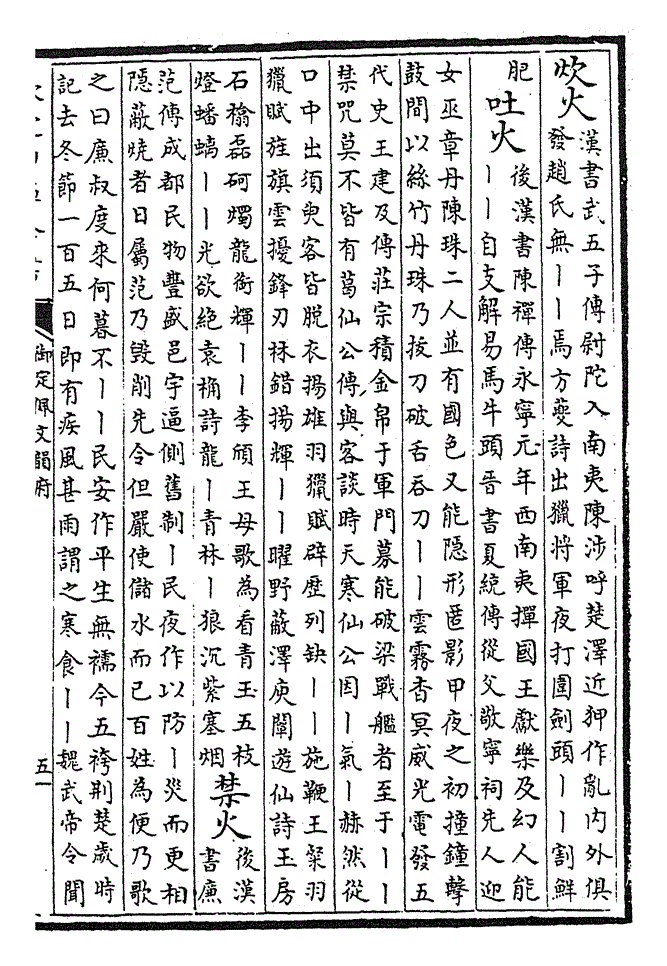 炊火
漢書武五子傳尉陀入南夷陳涉呼楚澤近狎作亂内外俱
發趙氏無丨丨焉方夔詩出獵將軍夜打圍劍頭丨丨割鮮
肥
吐火
後漢書陳禪傳永寧元年西南夷撣國王獻樂及幻人能
丨丨自支解易馬牛頭晉書夏統傳從父敬寧祠先人迎
女巫章丹陳珠二人並有國色又能隱形匿影甲夜之初撞鐘擊
鼓間以絲竹丹珠乃拔刀破舌吞刀丨丨雲霧杳冥威光電發五
代史王建及傳莊宗積金帛于軍門募能破梁戰艦者至于丨丨
禁咒莫不皆有葛仙公傳與客談時天寒仙公因丨氣丨赫然從
口中出須臾客皆脫衣揚雄羽獵賦辟歷列缺丨丨施鞭王粲羽
獵賦旌旗雲擾鋒刃林錯揚輝丨丨曜野蔽澤庾闡遊仙詩玉房
石榆磊砢燭龍銜輝丨丨李頎王母歌為看青玉五枝
燈蟠螭丨丨光欲絕袁桷詩龍丨青林丨狼沉紫塞烟
禁火
後漢
書廉
范傳成都民物豐盛邑宇逼側舊制丨民夜作以防丨災而更相
隱蔽燒者日屬范乃毁削先令但嚴使儲水而已百姓為便乃歌
之曰廉叔度來何暮不丨丨民安作平生無襦今五袴荆楚歲時
記去冬節一百五日即有疾風甚雨謂之寒食丨丨魏武帝令聞
御定佩文韻府
五一